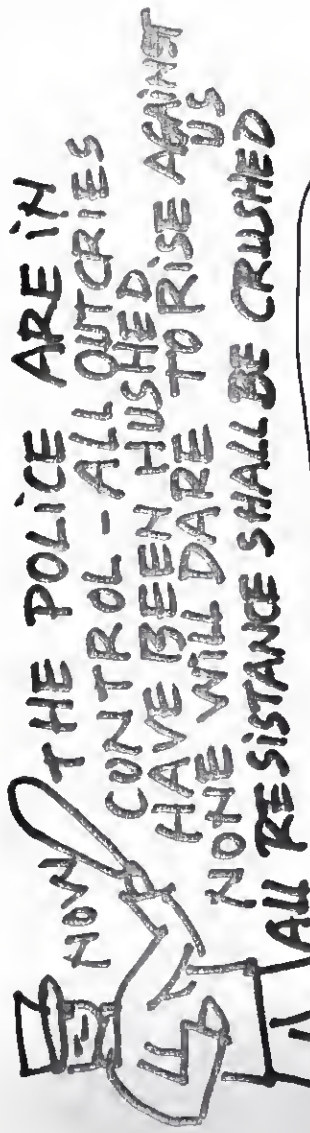 NOW THE POLICE ARE IN
CONTROL - ALL OUTCRIES
HAVE BEEN HUSHED
NONE WILL DARE TO RISE AGAINST
US
ALL RESISTANCE SHALL BE CRUSHED